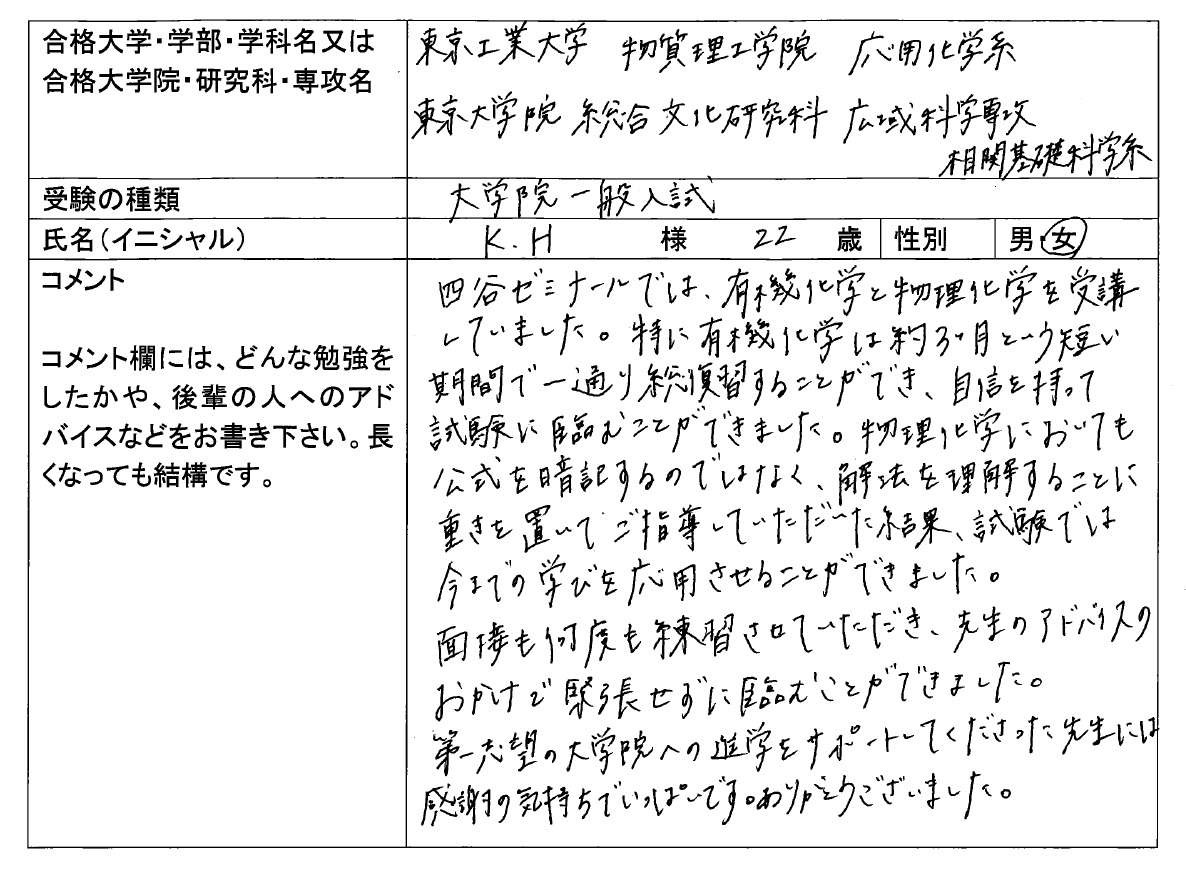 合格大学・学部・学科名又は
合格大学院・研究科・専攻名
東京工業大学 物質理工学院 応用化学系
東京大学院 総合文化研究科 広域科学専攻
相関基礎科学系
受験の種類
大学院一般入試
氏名(イニシャル)
K.H 様 22 歳 性別 男・女
コメント
コメント欄には、どんな勉強を
したかや、後輩の人へのアド
バイスなどをお書き下さい。長
くなっても結構です。
四谷ゼミナールでは、有機化学と物理化学を受講
していました。特に有機化学は約3ヶ月という短い
期間で一通り総復習することができ、自信を持って
試験に臨むことができました。物理化学においても
公式を暗記するのではなく、解法を理解することに
重きを置いてご指導していただいた結果、試験では
今までの学びを応用させることができました。
面接も何度も練習させていただき、先生のアドバイスの
おかげで緊張せずに臨むことができました。
第一志望の大学院への進学をサポートしてくださった先生には
感謝の気持ちでいっぱいです。ありがとうございました。